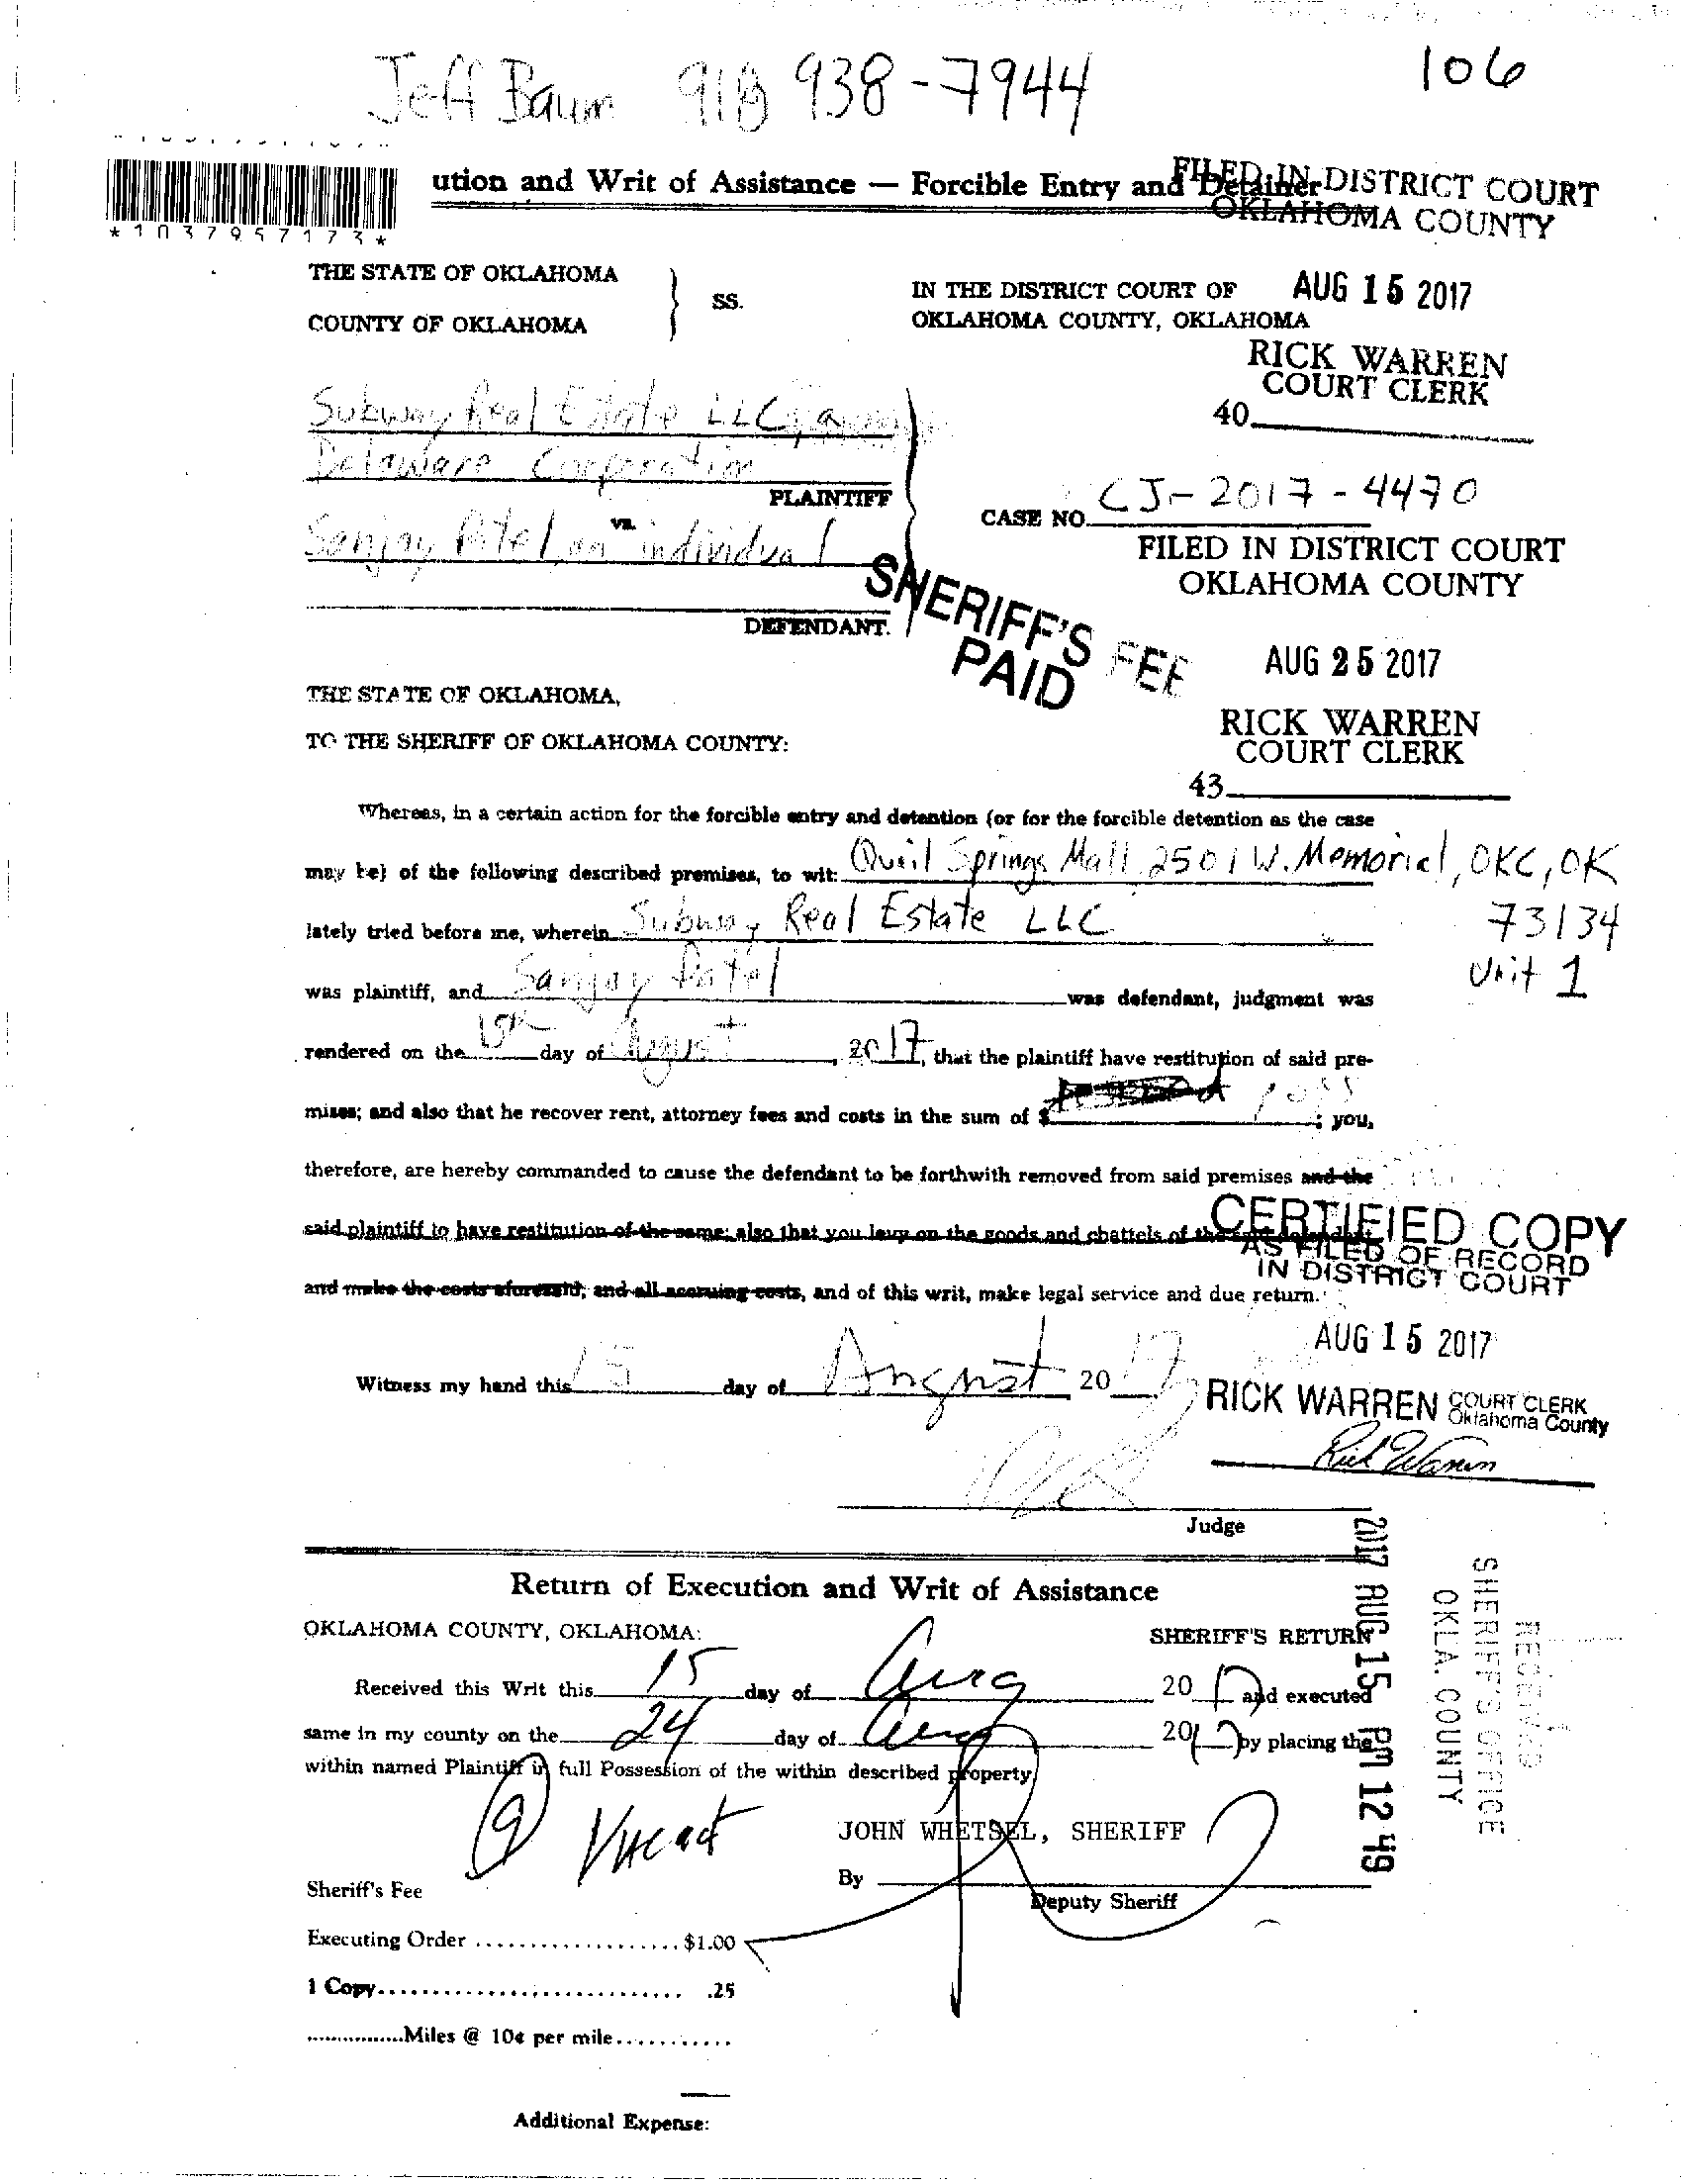 Jeff Baum 918 938-7944
106
*1037957173*
ution and Writ of Assistance — Forcible Entry and Detainer
FILED IN DISTRICT COURT
OKLAHOMA COUNTY
THE STATE OF OKLAHOMA
COUNTY OF OKLAHOMA
SS.
IN THE DISTRICT COURT OF
OKLAHOMA COUNTY, OKLAHOMA
AUG 15 2017
RICK WARREN
COURT CLERK
40
Subway Real Estate LLC, a
Delaware Corporation
PLAINTIFF
vs.
Sanjay Patel, an individual
DEFENDANT.
CASE NO. CJ-2017-4470
FILED IN DISTRICT COURT
OKLAHOMA COUNTY
SHERIFF'S FEE
PAID
AUG 25 2017
RICK WARREN
COURT CLERK
43
THE STATE OF OKLAHOMA,
TO THE SHERIFF OF OKLAHOMA COUNTY:
Whereas, in a certain action for the forcible entry and detention (or for the forcible detention as the case
may be) of the following described premises, to wit: Quail Springs Mall 2501 W. Memorial, OKC, OK
73134
Unit 1
lately tried before me, wherein Subway Real Estate LLC
was plaintiff, and Sanjay Patel was defendant, judgment was
rendered on the 15th day of August, 2017, that the plaintiff have restitution of said pre-
mises; and also that he recover rent, attorney fees and costs in the sum of $ ; you,
therefore, are hereby commanded to cause the defendant to be forthwith removed from said premises and the
said plaintiff to have restitution of the same; also that you levy on the goods and chattels of the said defendant
and make the costs aforesaid, and all accruing costs, and of this writ, make legal service and due return.
CERTIFIED COPY
AS FILED OF RECORD
IN DISTRICT COURT
AUG 15 2017
Witness my hand this 15 day of August 2017
RICK WARREN COURT CLERK
Oklahoma County
Rick Warren
Judge
Return of Execution and Writ of Assistance
OKLAHOMA COUNTY, OKLAHOMA:
SHERIFF'S RETURN
Received this Writ this 15 day of Aug 2017 and executed
same in my county on the 24 day of Aug 2017 by placing the
within named Plaintiff in full Possession of the within described property
Vacant
JOHN WHETSEL, SHERIFF
By
Deputy Sheriff
2017 AUG 15 PM 12 49
RECEIVED
SHERIFF'S OFFICE
OKLA. COUNTY
Sheriff's Fee
Executing Order .................... $1.00
1 Copy............................. .25
................Miles @ 10¢ per mile............
Additional Expense: